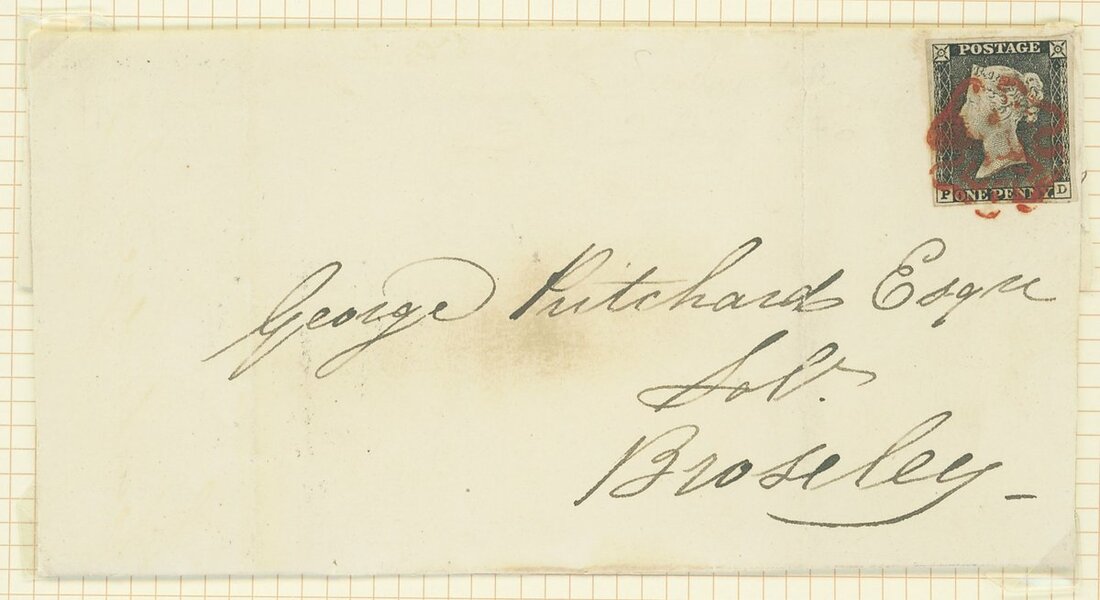 POSTAGE
P ONE PENNY D
George Pritchard Esqre
Solr.
Broseley